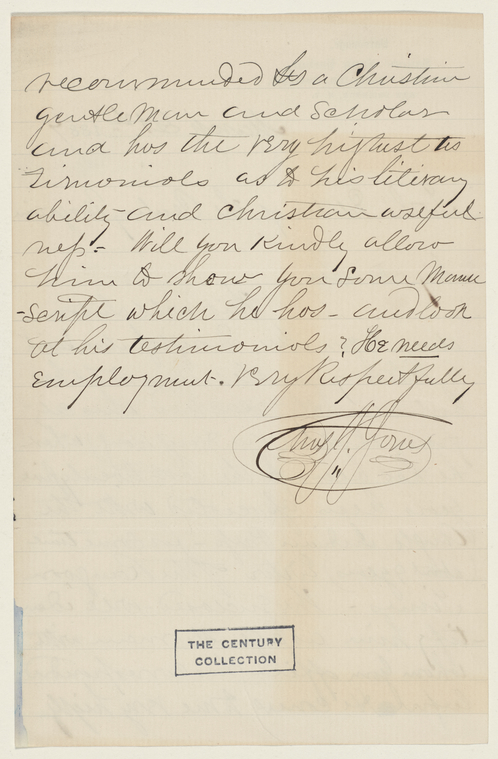 recommended As a Christian
gentleman and Scholar
and has the very highest tes
timonials as to his literary
ability and Christian useful
ness - Will you Kindly allow
him to show you some Manu
-script which he has - and look
at his testimonials? He needs
Employment. Very Respectfully
Chas. J. Jones
THE CENTURY
COLLECTION